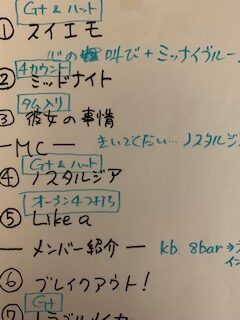 G+ & ハット
① スイエモ
心の叫び + ミッナイヴルー
4カウント
② ミッドナイト
タム入り
③ 彼女の事情
— MC — きいてくだい… ノスタルジ
G+ & ハット
④ ノスタルジア
オープン4つ打ち
⑤ Like a
— メンバー紹介 — kb. 8bar →
⑥ ブレイクアウト!
G+
⑦ トラブルメイカ